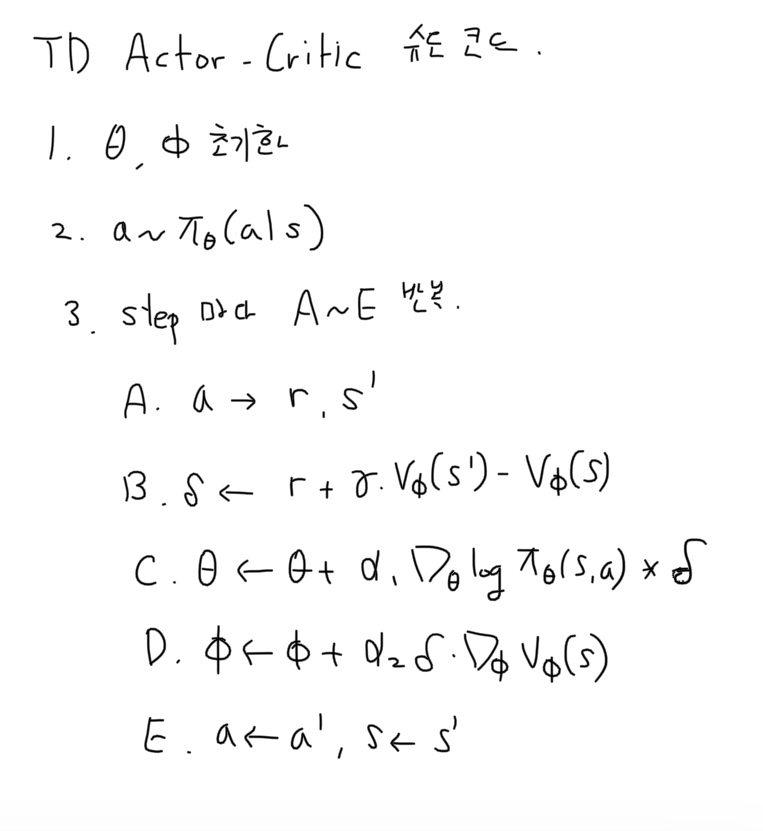 TD Actor - Critic 슈도 코드.
1. θ, ϕ 초기화
2. a ~ πθ(a|s)
3. step 마다 A~E 반복.
A. a → r, s'
B. δ ← r + γ·Vϕ(s') - Vϕ(s)
C. θ ← θ + α₁ ∇θ log πθ(s,a) * δ
D. ϕ ← ϕ + α₂ δ·∇ϕ Vϕ(s)
E. a ← a', s ← s'